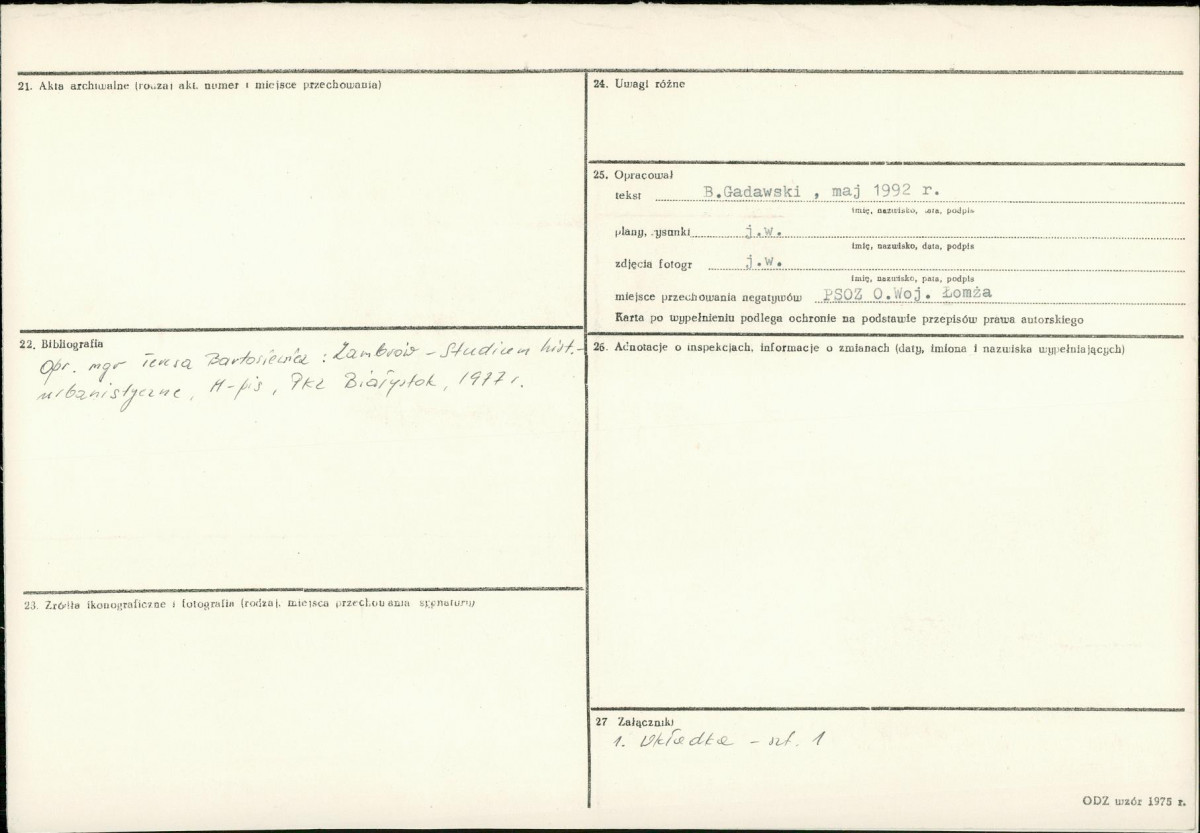 21. Akta archiwalne (rodzaj akt, numer i miejsce przechowania)
22. Bibliografia
Opr. mgr Teresa Bartosiewicz: Zambrów – Studium hist.-
urbanistyczne, M-pis, PKZ Białystok, 1977 r.
23. Źródła ikonograficzne i fotografia (rodzaj, miejsca przechowania sygnatury
24. Uwagi różne
25. Opracował
tekst B.Gadawski , maj 1992 r.
imię, nazwisko, data, podpis
plany, rysunki j.w.
imię, nazwisko, data, podpis
zdjęcia fotogr j.w.
imię, nazwisko, data, podpis
miejsce przechowania negatywów PSOZ O.Woj. Łomża
Karta po wypełnieniu podlega ochronie na podstawie przepisów prawa autorskiego
26. Adnotacje o inspekcjach, informacje o zmianach (daty, imiona i nazwiska wypełniających)
27 Załączniki
1. Wkładka – szt. 1
ODZ wzór 1975 r.